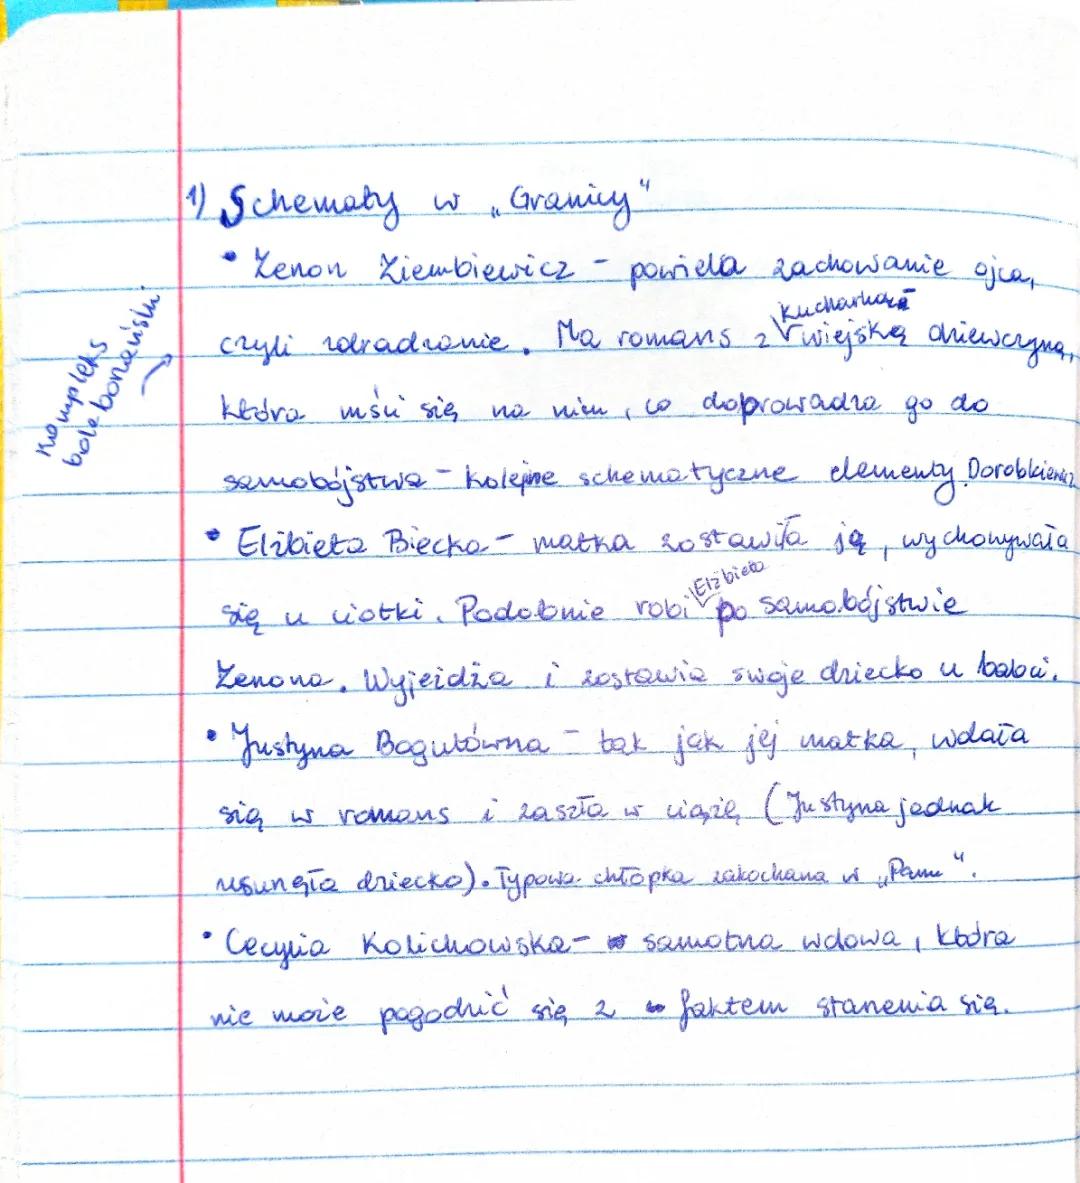 1) Schematy w „Granicy"
• Zenon Ziembiewicz - powiela zachowanie ojca,
kucharką
czyli zdradzanie. Ma romans z wiejską dziewczyną,
Kompleks
bole bonański
która mści się na nim, co doprowadza go do
samobójstwa - kolejne schematyczne elementy. Dorobkiewicz
• Elżbieta Biecka - matka zostawiła ją, wychowywała
się u ciotki. Podobnie robi Elżbieta po samobójstwie
Zenona. Wyjeżdża i zostawia swoje dziecko u babci.
• Justyna Bogutówna - tak jak jej matka, wdała
się w romans i zaszła w ciążę (Justyna jednak
usunęła dziecko). Typowa chłopka zakochana w „Panu".
• Cecylia Kolichowska - samotna wdowa, która
nie może pogodzić się z faktem starzenia się.